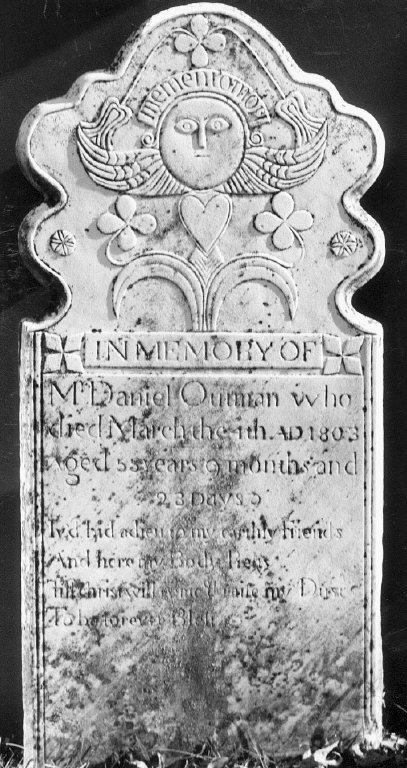 memento mori
IN MEMORY OF
Mr Daniel Quinian who
died March the 4th AD 1803
Aged 55 years 9 months and
23 Days
I'v'd bid adieu to my earthly Friends
And here my Body lies
Till christ will come & raise my Dust
To be forever Blest